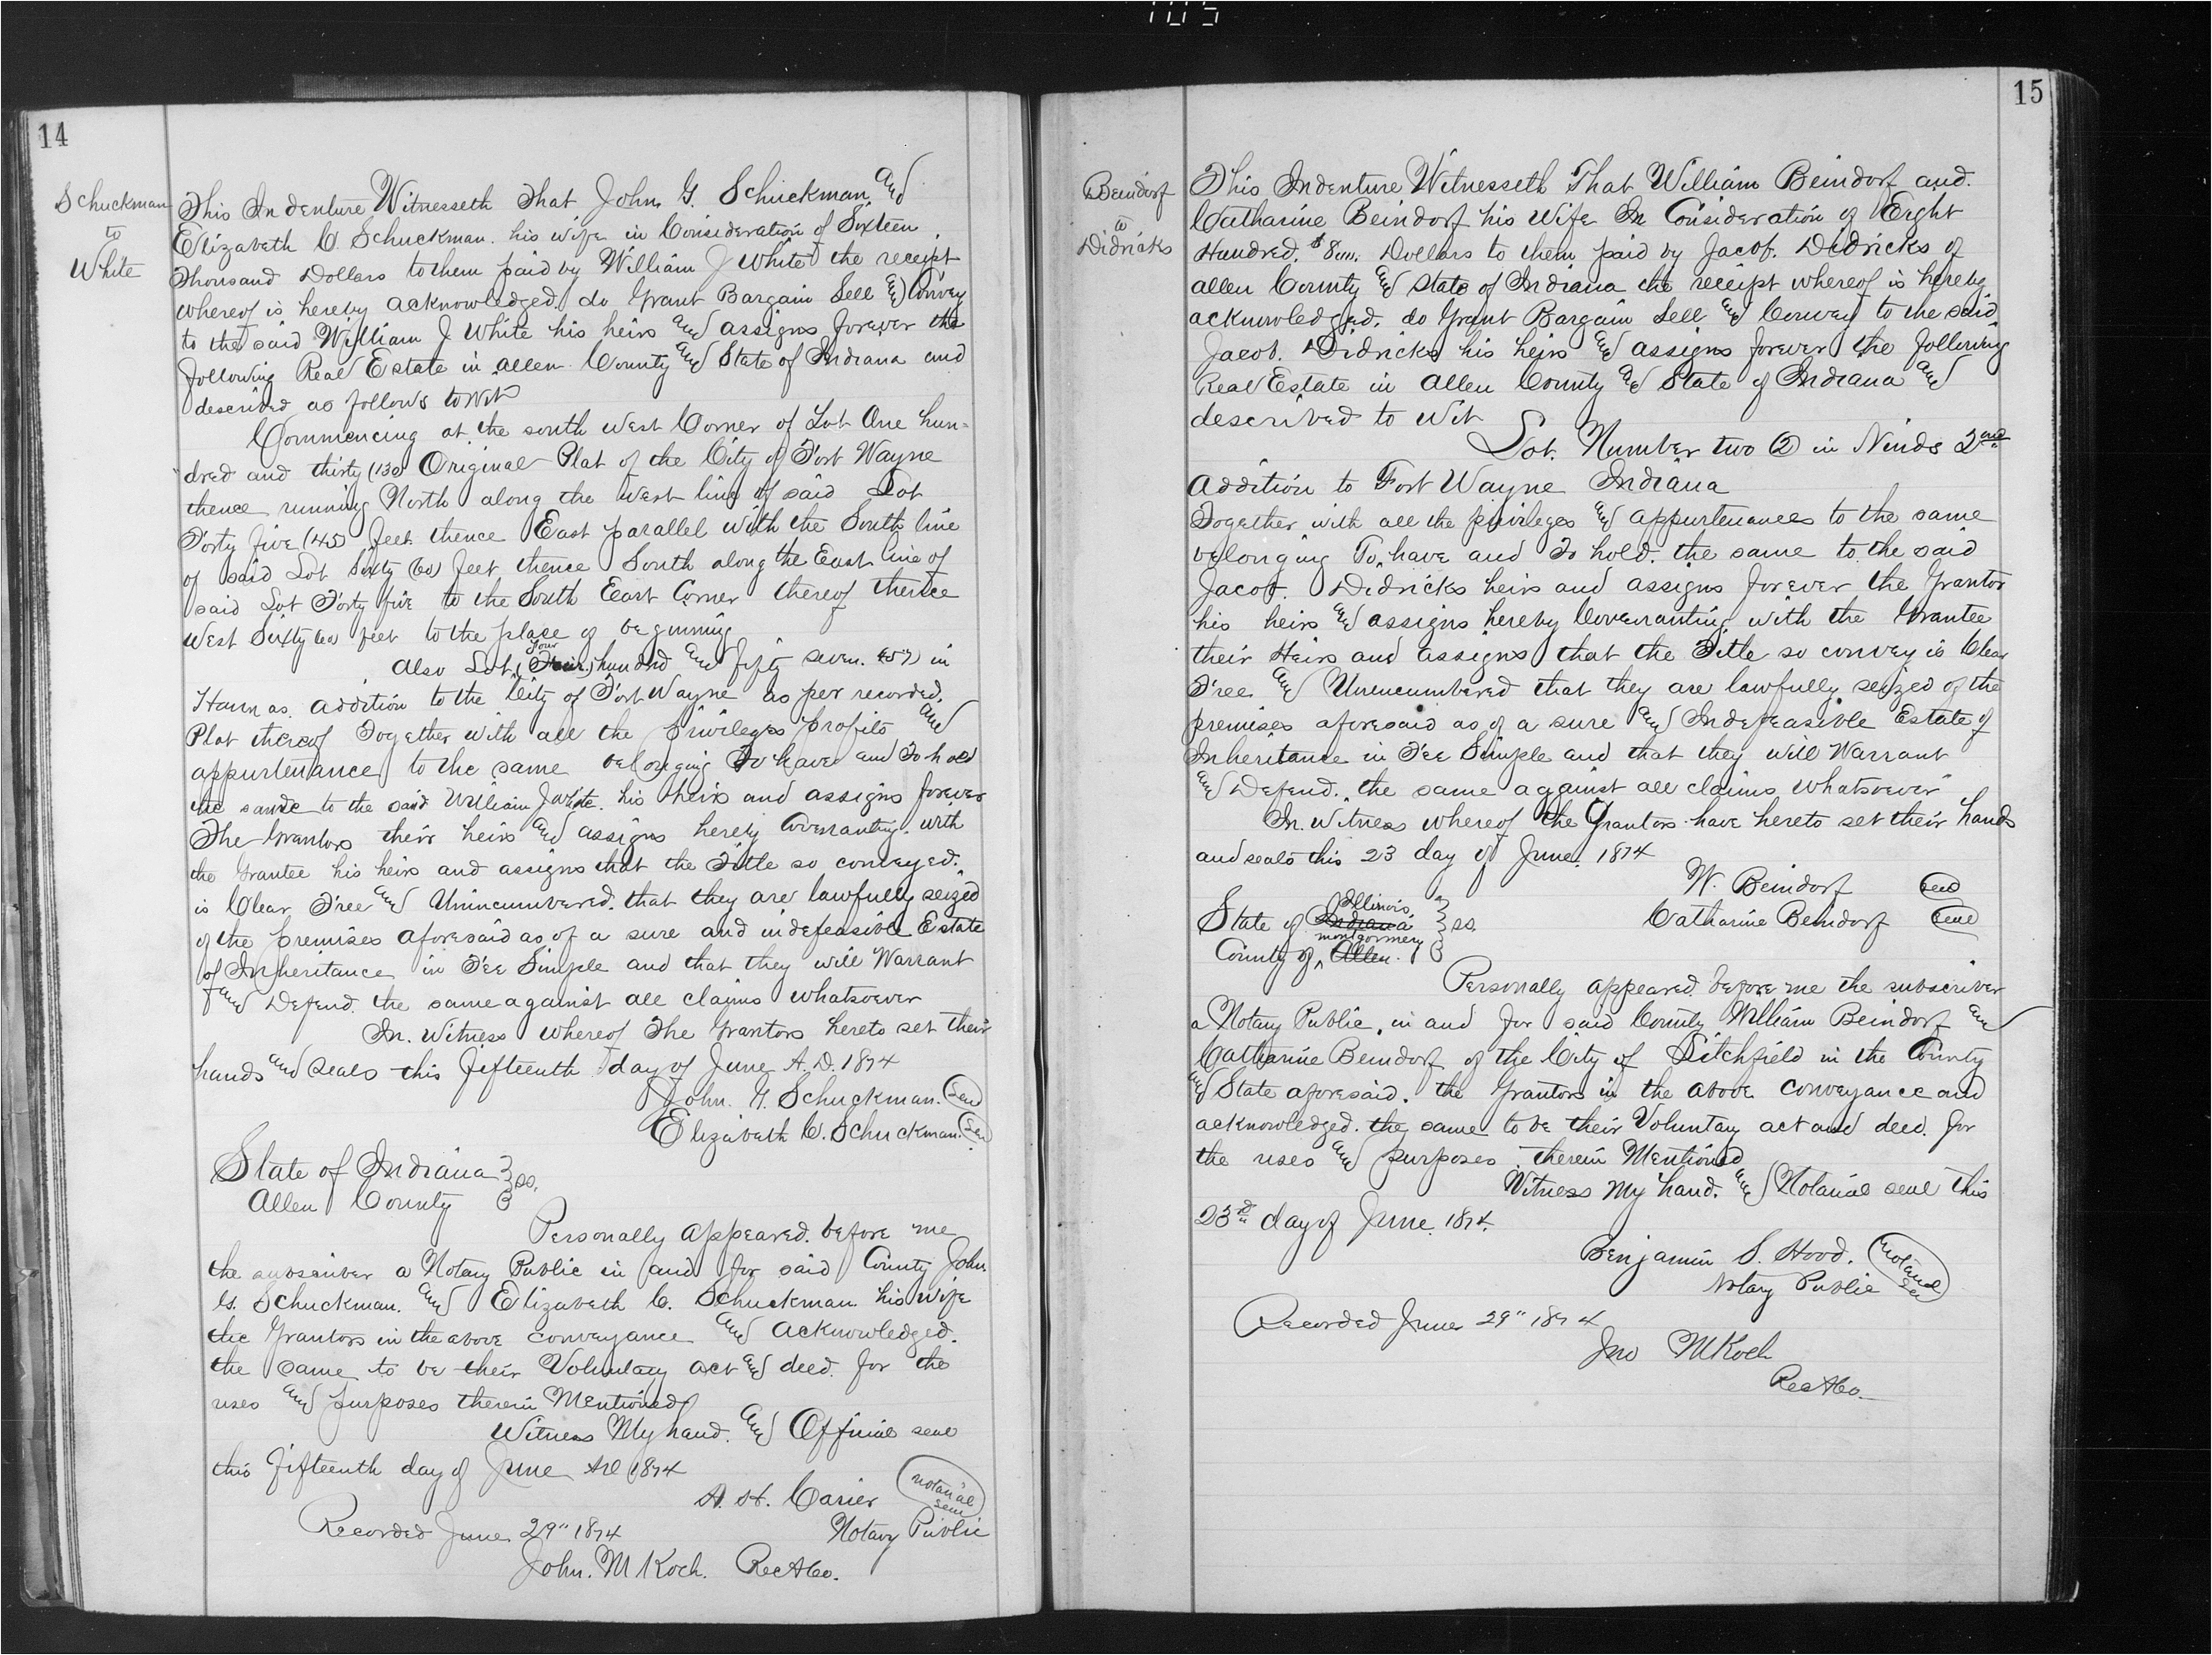 105
14
Schuckman
to
White
This Indenture Witnesseth That John G. Schuckman and
Elizabeth C. Schuckman his wife in Consideration of Sixteen
Thousand Dollars to them paid by William J White the receipt
whereof is hereby acknowledged do Grant Bargain Sell and Convey
to the said William J White his heirs and assigns forever the
following Real Estate in Allen County and State of Indiana and
described as follows to Wit
Commencing at the south West Corner of Lot One hun-
dred and thirty (130) Original Plat of the City of Fort Wayne
thence running North along the West line of said Lot
Forty five (45) feet thence East parallel with the South line
of said Lot Sixty (60) feet thence South along the East line of
said Lot Forty five to the South East Corner thereof thence
West Sixty (60) feet to the place of beginning
Also Lot Four hundred and fifty seven (457) in
Hannas addition to the City of Fort Wayne as per recorded
Plat thereof Together with all the privileges profits and
appurtenance to the same belonging To have and To hold
the same to the said William J White his heirs and assigns forever
The Grantors their heirs and assigns hereby Covenanting with
the Grantee his heirs and assigns that the Title so conveyed
is Clear Free and Unincumbered that they are lawfully seized
of the premises aforesaid as of a sure and indefeasible Estate
of Inheritance in Fee Simple and that they will Warrant
and Defend the same against all claims whatsoever
In Witness whereof The Grantors hereto set their
hands and seals this fifteenth day of June A.D. 1874
John. G. Schuckman. Seal
Elizabeth C. Schuckman. Seal
State of Indiana } ss.
Allen County }
Personally appeared before me
the subscriber a Notary Public in and for said County John
G. Schuckman. and Elizabeth C. Schuckman his wife
the Grantors in the above conveyance and acknowledged.
the same to be their Voluntary act and deed for the
uses and purposes therein Mentioned
Witness My hand and Official seal
this fifteenth day of June AD 1874
A. H. Carier notarial seal
Recorded June 29" 1874 Notary Public
John. M Koch. Rec A Co.
15
Beindorf
to
Didricks
This Indenture Witnesseth That William Beindorf and
Catharine Beindorf his Wife In Consideration of Eight
Hundred. $800. Dollars to them paid by Jacob. Didricks of
Allen County and State of Indiana the receipt whereof is hereby
acknowledged. do Grant Bargain Sell and Convey to the said
Jacob. Didricks his heirs and assigns forever the following
Real Estate in Allen County and State of Indiana and
described to Wit
Lot. Number two (2) in Ninds 2nd
Addition to Fort Wayne Indiana
Together with all the privileges and appurtenances to the same
belonging To have and To hold the same to the said
Jacob. Didricks heirs and assigns forever the Grantor
his heirs and assigns hereby Covenanting with the Grantee
their Heirs and assigns that the Title so convey is Clear
Free and Unencumbered that they are lawfully seized of the
premises aforesaid as of a sure and Indefeasible Estate of
Inheritance in Fee Simple and that they will Warrant
and Defend. the same against all claims whatsoever
In Witness whereof the Grantors have hereto set their hands
and seals this 23 day of June. 1874
W. Beindorf Seal
Catharine Beindorf Seal
State of Indiana Illinois } ss.
County of Allen montgomery }
Personally appeared before me the subscriber
a Notary Public, in and for said County William Beindorf and
Catharine Beindorf of the City of Litchfield in the County
and State aforesaid. the Grantors in the above conveyance and
acknowledged. the same to be their Voluntary act and deed. for
the uses and purposes therein Mentioned
Witness my hand. and Notarial seal this
23rd day of June. 1874.
Benjamin S. Hood. notarial seal
Notary Public
Recorded June 29" 1874
Jno M Koch
Rec A Co.